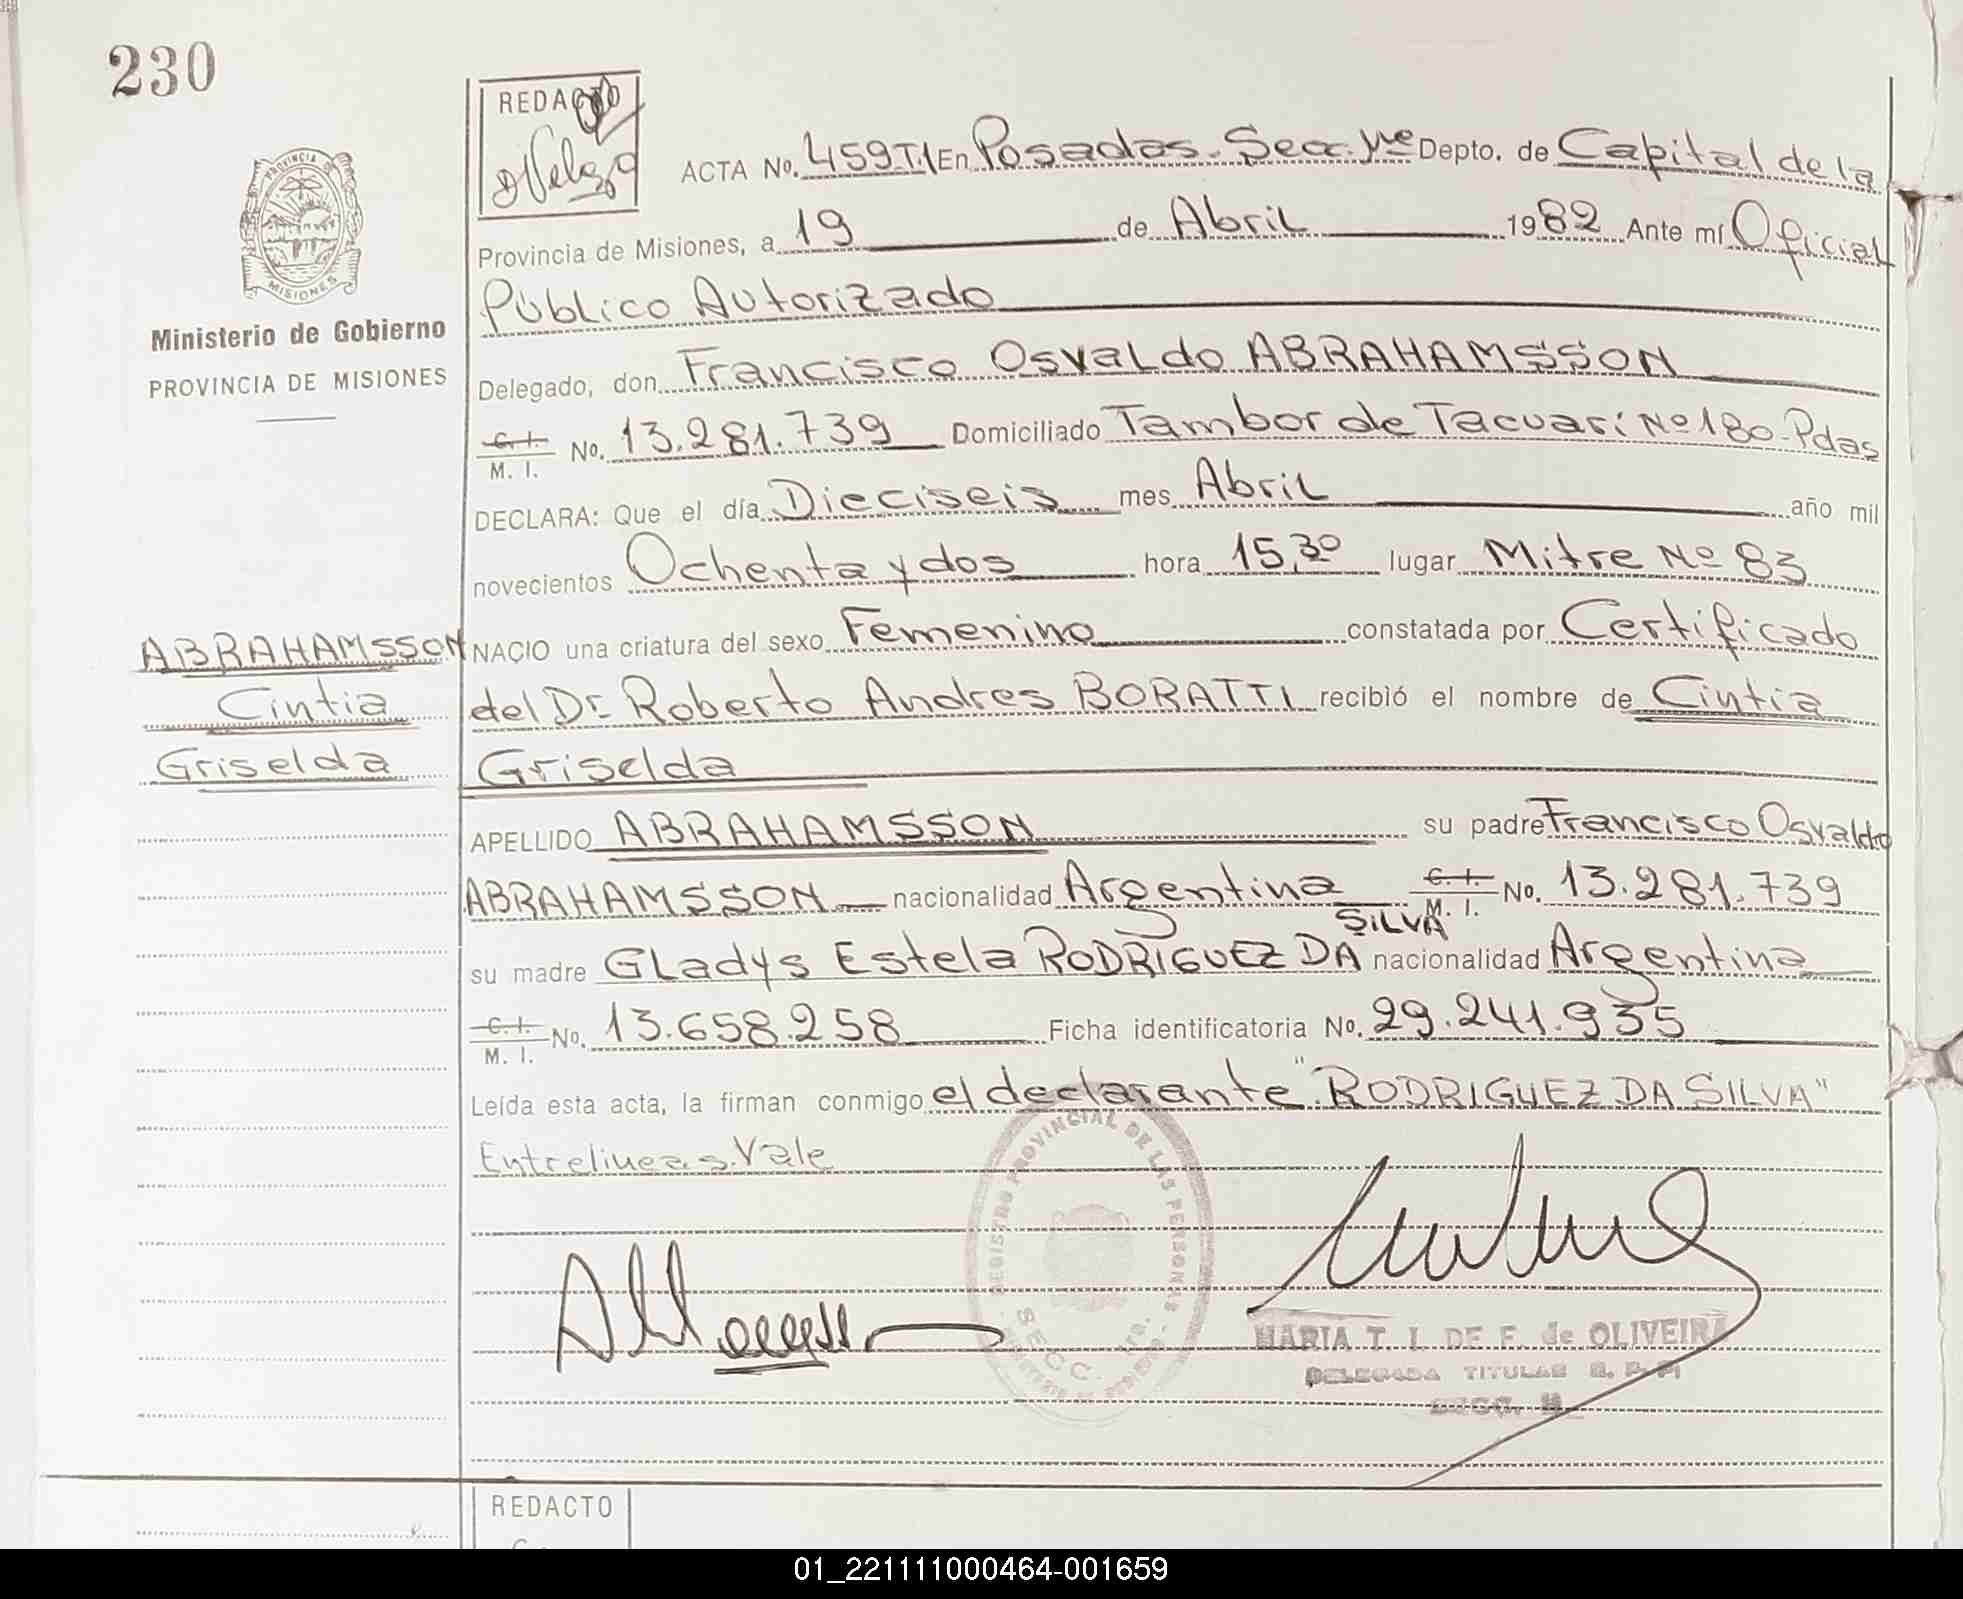 230
REDACTO
ACTA No. 459T.1 En Posadas. Secc. 1ra Depto. de Capital de la
Provincia de Misiones, a 19 de Abril 1982 Ante mí Oficial
Público Autorizado
PROVINCIA DE
MISIONES
Ministerio de Gobierno
PROVINCIA DE MISIONES
Delegado, don Francisco Osvaldo ABRAHAMSSON
C. I. M. I. No. 13.281.739 Domiciliado Tambor de Tacuarí Nº 180-Pdas
DECLARA: Que el día Dieciseis mes Abril año mil
novecientos Ochenta y dos hora 15,30 lugar Mitre Nº 83
ABRAHAMSSON NACIO una criatura del sexo Femenino constatada por Certificado
Cintia del Dr. Roberto Andres BORATTI recibió el nombre de Cintia
Griselda Griselda
APELLIDO ABRAHAMSSON su padre Francisco Osvaldo
ABRAHAMSSON nacionalidad Argentina C. I. M. I. No. 13.281.739
SILVA
su madre Gladys Estela RODRIGUEZ DA nacionalidad Argentina
C. I. M. I. No. 13.658.258 Ficha identificatoria No. 29.241.935
Leída esta acta, la firman conmigo el declarante "RODRIGUEZ DA SILVA"
Entrelineas. Vale
REGISTRO PROVINCIAL DE LAS PERSONAS
SECC. 1ra.
MARIA T. I. DE F. de OLIVEIRA
DELEGADA TITULAR R. P. P.
SECC.
REDACTO
01_221111000464-001659